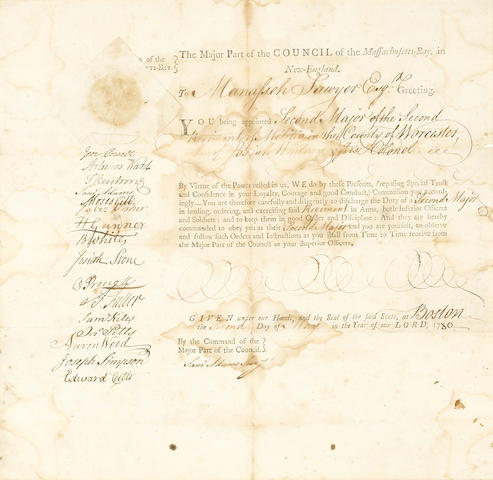 of the }
The Major Part of the COUNCIL of the Massachusetts-Bay, in
New-England.
To Manasseh Sawyer Esqr. Greeting.
YOU being appointed Second Major of the Second
Regiment of Militia in the County of Worcester,
Colonel
By Virtue of the Power vested in us, WE do by these Presents, (reposing special Trust
and Confidence in your Loyalty, Courage and good Conduct,) Commission you accord-
ingly.—You are therefore carefully and diligently to discharge the Duty of a Second Major
in leading, ordering, and exercising said Regiment in Arms, both Inferior Officers
and Soldiers; and to keep them in good Order and Discipline: And they are hereby
commanded to obey you as their Second Major and you are yourself, to observe
and follow such Orders and Instructions as you shall from Time to Time receive from
the Major Part of the Council or your Superior Officers.
GIVEN under our Hands, and the Seal of the said State, at Boston
the Second Day of in the Year of our LORD, 1780.
By the Command of the }
Major Part of the Council. }
Saml Adams Secy
Jer Powell
Artemas Ward
T Cushing
Saml Adams
Moses Gill
H Gardner
B White
Josiah Stone
O Prescott
A Fuller
Saml Niles
Jno Pitts
Aaron Wood
Joseph Simpson
Edward Cutts